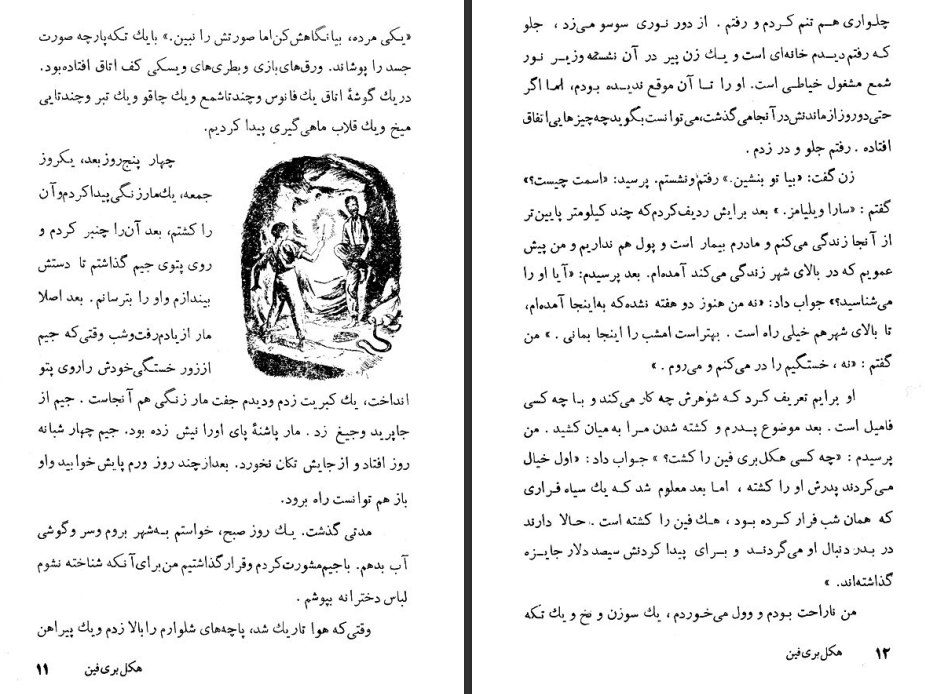 «یکی مرده، بیا نگاهش کن اما صورتش را نبین.» با یك تکه پارچه صورت
جسد را پوشاند. ورق‌های بازی و بطری‌های ویسکی کف اتاق افتاده بود.
در یك گوشهٔ اتاق یك فانوس و چند تا شمع و یك چاقو و یك تبر و چندتایی
میخ و یك قلاب ماهی‌گیری پیدا کردیم.
چهار پنج روز بعد، یکروز
جمعه، یك مار زنگی پیدا کردم و آن
را کشتم، بعد آن را چنبر کردم و
روی پتوی جیم گذاشتم تا دستش
بیندازم و او را بترسانم. بعد اصلا
مار از یادم رفت و شب وقتی که جیم
از زور خستگی خودش را روی پتو
انداخت، یك کبریت زدم و دیدم جفت مار زنگی هم آنجاست. جیم از
جا پرید و جیغ زد. مار پاشنهٔ پای او را نیش زده بود. جیم چهار شبانه
روز افتاد و از جایش تکان نخورد. بعد از چند روز ورم پایش خوابید و او
باز هم توانست راه برود.
مدتی گذشت. یك روز صبح، خواستم به شهر بروم و سر و گوشی
آب بدهم. با جیم مشورت کردم و قرار گذاشتیم من برای آنکه شناخته نشوم
لباس دخترانه بپوشم.
وقتی که هوا تاریك شد، پاچه‌های شلوارم را بالا زدم و یك پیراهن
هکل بری فین ۱۱
چلواری هم تنم کردم و رفتم. از دور نوری سوسو می‌زد، جلو
که رفتم دیدم خانه‌ای است و یك زن پیر در آن نشسته و زیر نور
شمع مشغول خیاطی است. او را تا آن موقع ندیده بودم، اما اگر
حتی دو روز از ماندنش در آنجا می‌گذشت، می‌توانست بگوید چه چیزهایی اتفاق
افتاده. رفتم جلو و در زدم.
زن گفت: «بیا تو بنشین.» رفتم و نشستم. پرسید: «اسمت چیست؟»
گفتم: «سارا ویلیامز.» بعد برایش ردیف کردم که چند کیلومتر پایین‌تر
از آنجا زندگی می‌کنم و مادرم بیمار است و پول هم نداریم و من پیش
عمویم که در بالای شهر زندگی می‌کند آمده‌ام. بعد پرسیدم: «آیا او را
می‌شناسید؟» جواب داد: «نه من هنوز دو هفته نشده که به اینجا آمده‌ام،
تا بالای شهر هم خیلی راه است. بهتر است امشب را اینجا بمانی.» من
گفتم: «نه، خستگیم را در می‌کنم و می‌روم.»
او برایم تعریف کرد که شوهرش چه کار می‌کند و با چه کسی
فامیل است. بعد موضوع پدرم و کشته شدن مرا به میان کشید. من
پرسیدم: «چه کسی هکل‌بری فین را کشت؟» جواب داد: «اول خیال
می‌کردند پدرش او را کشته، اما بعد معلوم شد که یك سیاه فراری
که همان شب فرار کرده بود، هك فین را کشته است. حالا دارند
در بدر دنبال او می‌گردند و برای پیدا کردنش سیصد دلار جایزه
گذاشته‌اند.»
من ناراحت بودم و وول می‌خوردم، یك سوزن و نخ و یك تکه
هکل بری فین ۱۲